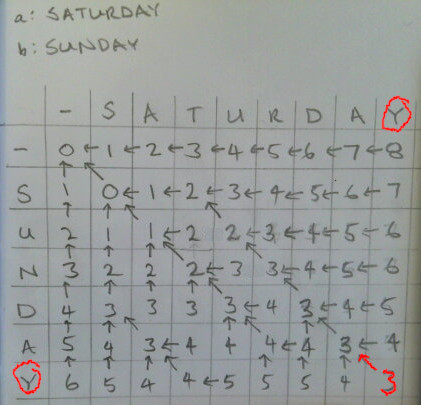 a: SATURDAY
b: SUNDAY
- S A T U R D A Y
- 0 1 2 3 4 5 6 7 8
S 1 0 1 2 3 4 5 6 7
U 2 1 1 2 2 3 4 5 6
N 3 2 2 2 3 3 4 5 6
D 4 3 3 3 3 4 3 4 5
A 5 4 3 4 4 4 4 3 4
Y 6 5 4 4 5 5 5 4 3